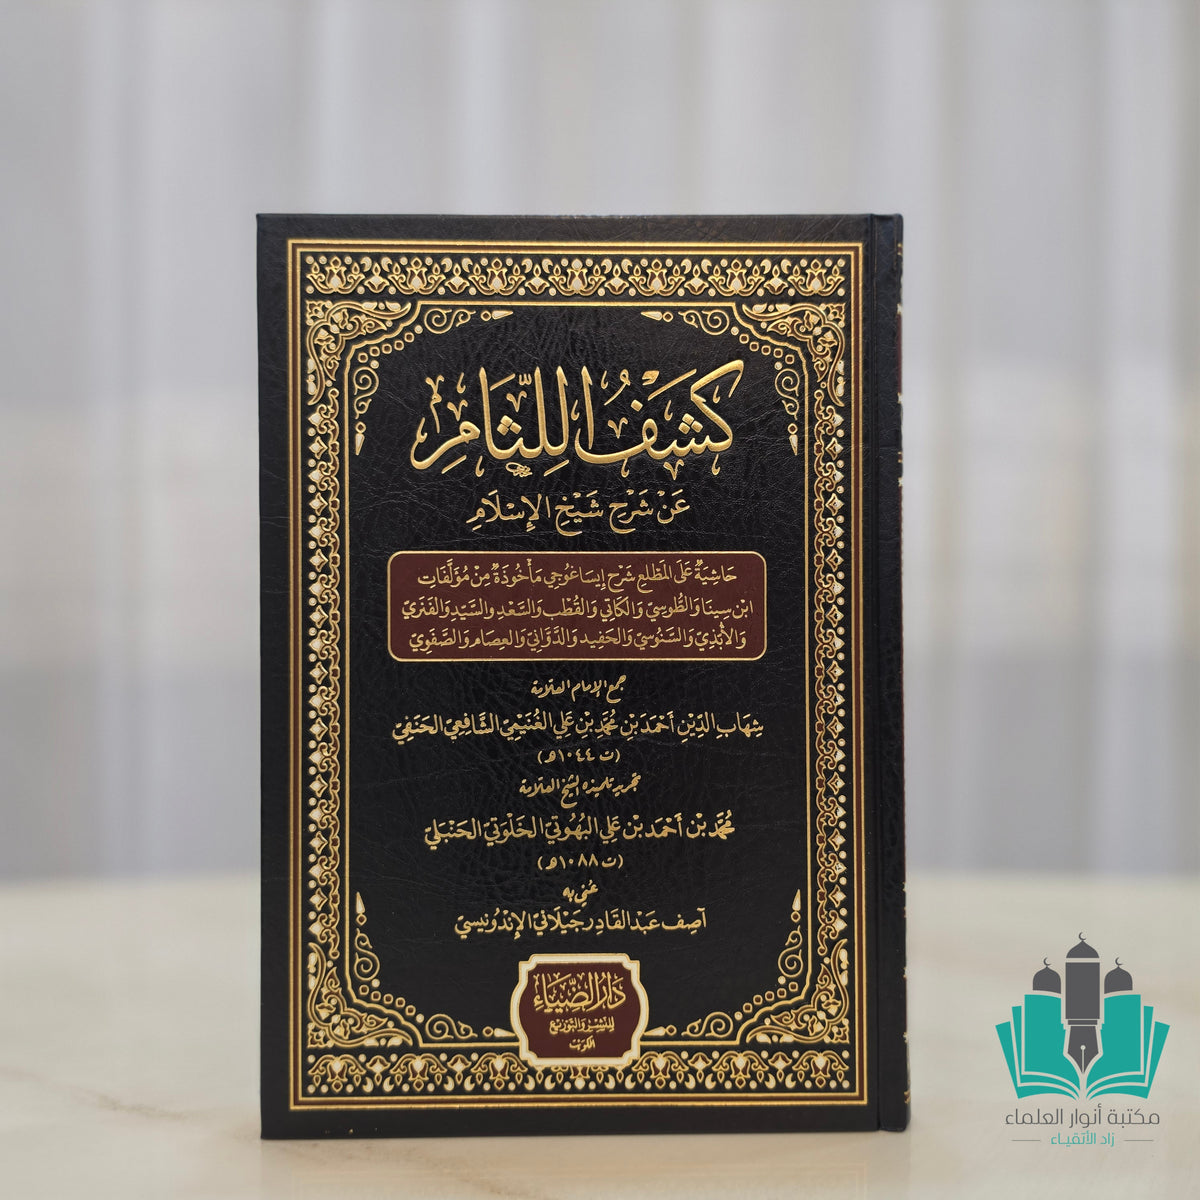 كَشْفُ اللِّثَامِ
عَنْ شَرْحِ شَيْخِ الإِسْلَامِ
حَاشِيَةٌ عَلَى المَطْلَعِ شَرْحِ إِيسَاغُوجِي مَأْخُوذَةٌ مِنْ مُؤَلَّفَاتِ
ابْنِ سِينَا وَالطُّوسِيِّ وَالكَاتِي وَالقُطْبِ وَالسَّعْدِ وَالسَّيِّدِ وَالفَنَرِيّ
وَالأُبَّذِيّ وَالسَّنُوسِيّ وَالحَفِيدِ وَالدَّوَّانِيّ وَالعِصَامِ وَالصَّفَوِيّ
جمع الإمام العلامة
شِهَابِ الدِّيْنِ أَحْمَدَ بْنِ مُحَمَّدِ بْنِ عَلِي الغُنَيْمِيّ الشَّافِعِيّ الحَنَفِيّ
(ت ١٠٤٤هـ)
تحرير تلميذه الشيخ العلامة
مُحَمَّد بْن أَحْمَد بْن عَلِي البُهُوتِيّ الخَلْوَتِيّ الحَنْبَلِيّ
(ت ١٠٨٨هـ)
عني به
آصِف عَبْد القَادِر جَيْلَانِيّ الإِنْدُونِيسِيّ
دَارُ الضِّيَاءِ
لِلنَّشْرِ وَالتَّوْزِيْعِ
الكويت
مكتبة أنوار العلماء
زاد الأتقياء